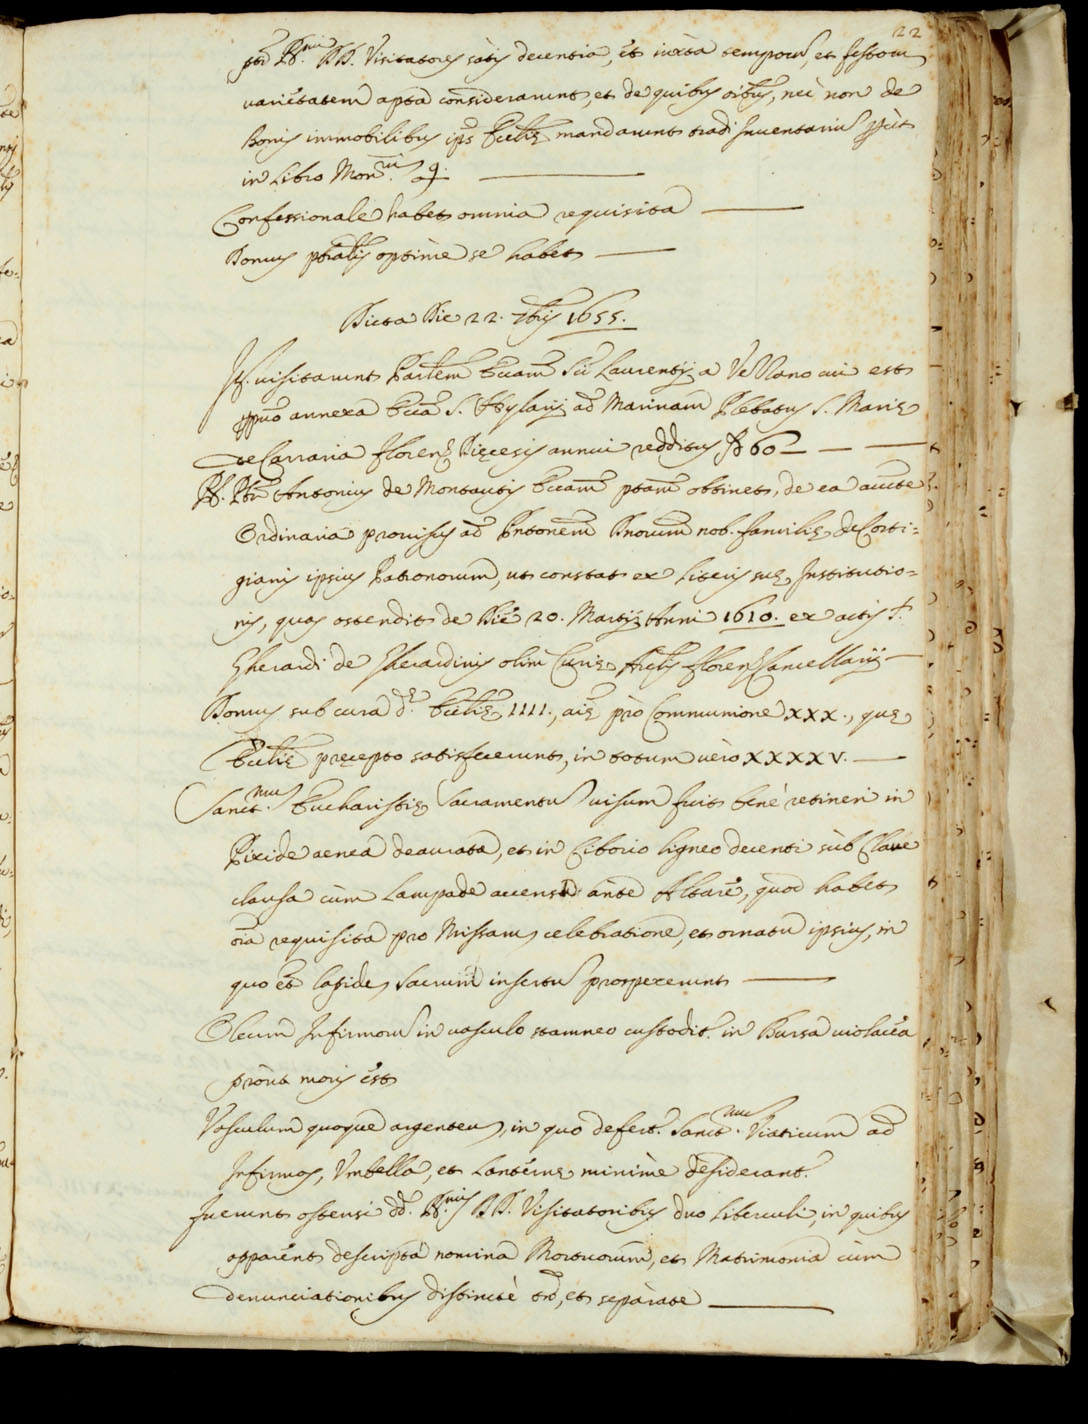 22
pti R.mi DD. Visitatores satis decentia, et iuxta temporū, et festorū
varietatem apta considerarunt, et de quibus oībus, nec non de
Bonis immobilibus ips. Ecclię mandarunt tradi Inventariū put
in Libro Mon.rū 9.
Confessionale habet omnia requisita
Domus pbralis optime se habet
Dicta Die 22. 7bris 1655.
Jt. visitarunt Parlem Eccam Sti Laurentij a Vellano cui est
ppuo annexa Ecca S. Hylarij ad Marinam Plebatus S. Marię
de Carraria Floren. Dięcesis annui redditus 60
R. Pbr Antonius de Montautis Eccam ptam obtinet, de ea aucte
Ordinaria provisus ad Pntonem Dnorum nob. familię de Corti-
gianis ipsius Patronorum, ut constat ex Literis suę Institutio-
nis, quas ostendit de Die 20. Martij Anni 1610. ex actis S.
Gherardi de Gherardinis olim Curię Archlis Floren. Cancellarij
Domus sub cura d.ę Ecclię 1111., aię pro Communione xxx., quę
Ecclię pręcepto satisfecerunt, in totum vero xxxxv.
Sanct.mū Eucharistię Sacramentū visum fuit bene retineri in
Pixide aenea deaurata, et in Ciborio ligneo decenti sub Clave
clausa cum Lampade accensa ante Altare, quod habet
oīa requisita pro Missarū celebratione, et ornatu ipsius, in
quo et lapidē Sacrum insertū prospexerunt
Oleum Infirmorū in vasculo stamneo custodit. in Bursa violacea
prout moris est
Vasculum quoque argenteū, in quo defert. Sanct.mū Viaticum ad
Infirmos, Umbella, et Lanternę minime desiderant.
Fuerunt ostensi dd. R.mis DD. Visitatoribus duo Liberculi, in quibus
apparent descripta nomina Mortuorum, et Matrimonia cum
denunciationibus distincte tn, et separate